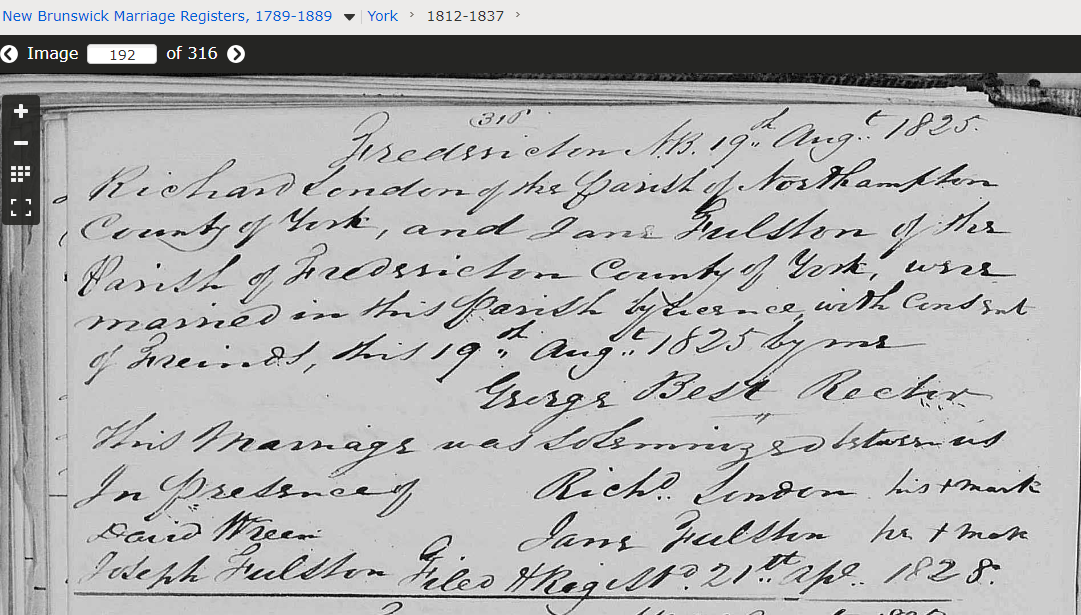 New Brunswick Marriage Registers, 1789-1889 York › 1812-1837 ›
Image 192 of 316
318
Fredericton N.B. 19th Augt. 1825.
Richard London of the Parish of Northampton
County of York, and Jane Fulston of the
Parish of Fredericton County of York, were
married in this Parish by Licence with Consent
of Freinds, this 19th Augt. 1825 by me
George Best Rector
This Marriage was Solemnized between us
In Presence of Richd. London his + mark
David Jane Fulston her + mark
Joseph Fulston Filed & Registd. 21st Apl. 1828.